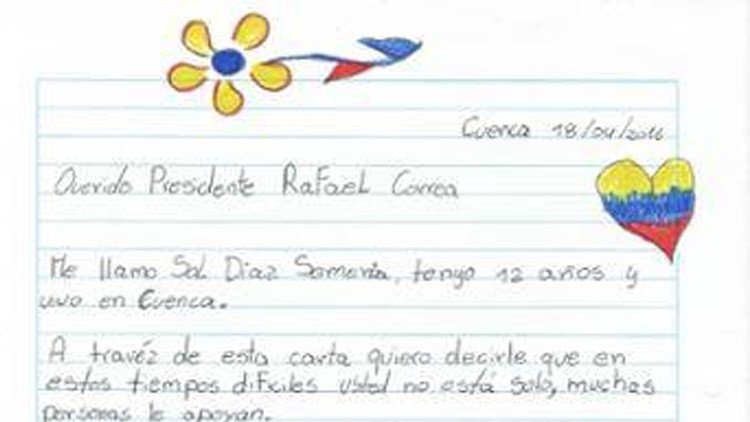 Cuenca 18/04/2016
Querido Presidente Rafael Correa
Me llamo Sol Diaz Samaria, tengo 12 años y
vivo en Cuenca.
A travéz de esta carta quiero decirle que en
estos tiempos dificiles usted no está solo, muchas
personas le apoyan.